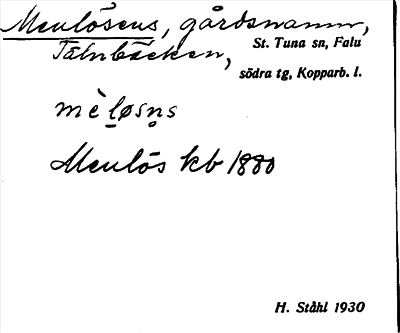 Menlösens, gårdsnamn,
Tälnbäcken, St. Tuna sn, Falu
södra tg, Kopparb. l.
mè lo̸sn̥s
Menlös kb 1880
H. Ståhl 1930